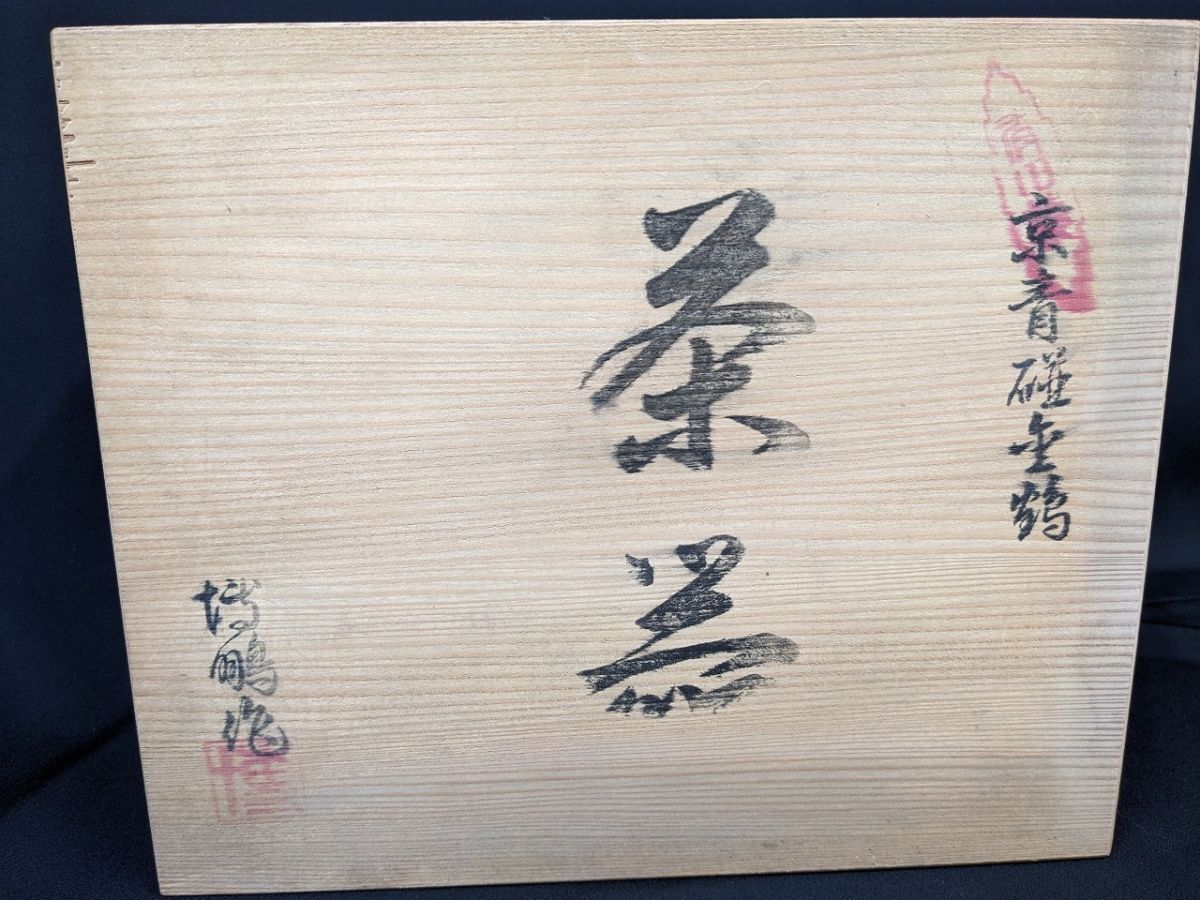 京青磁金鶴
茶器
博鵬作